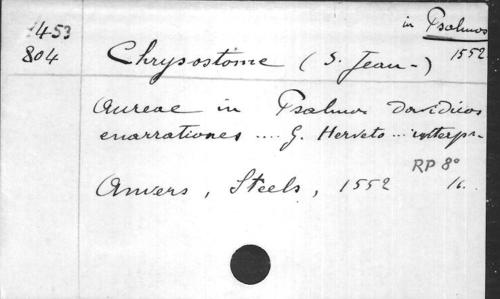 in Psalmos
1453
804
1552
Chrysostome (S. Jean-)
Aureae in Psalmos Davidicos
enarrationes .... G. Herveto ... interpr.
RP 8°
Anvers, Steels, 1552 16.